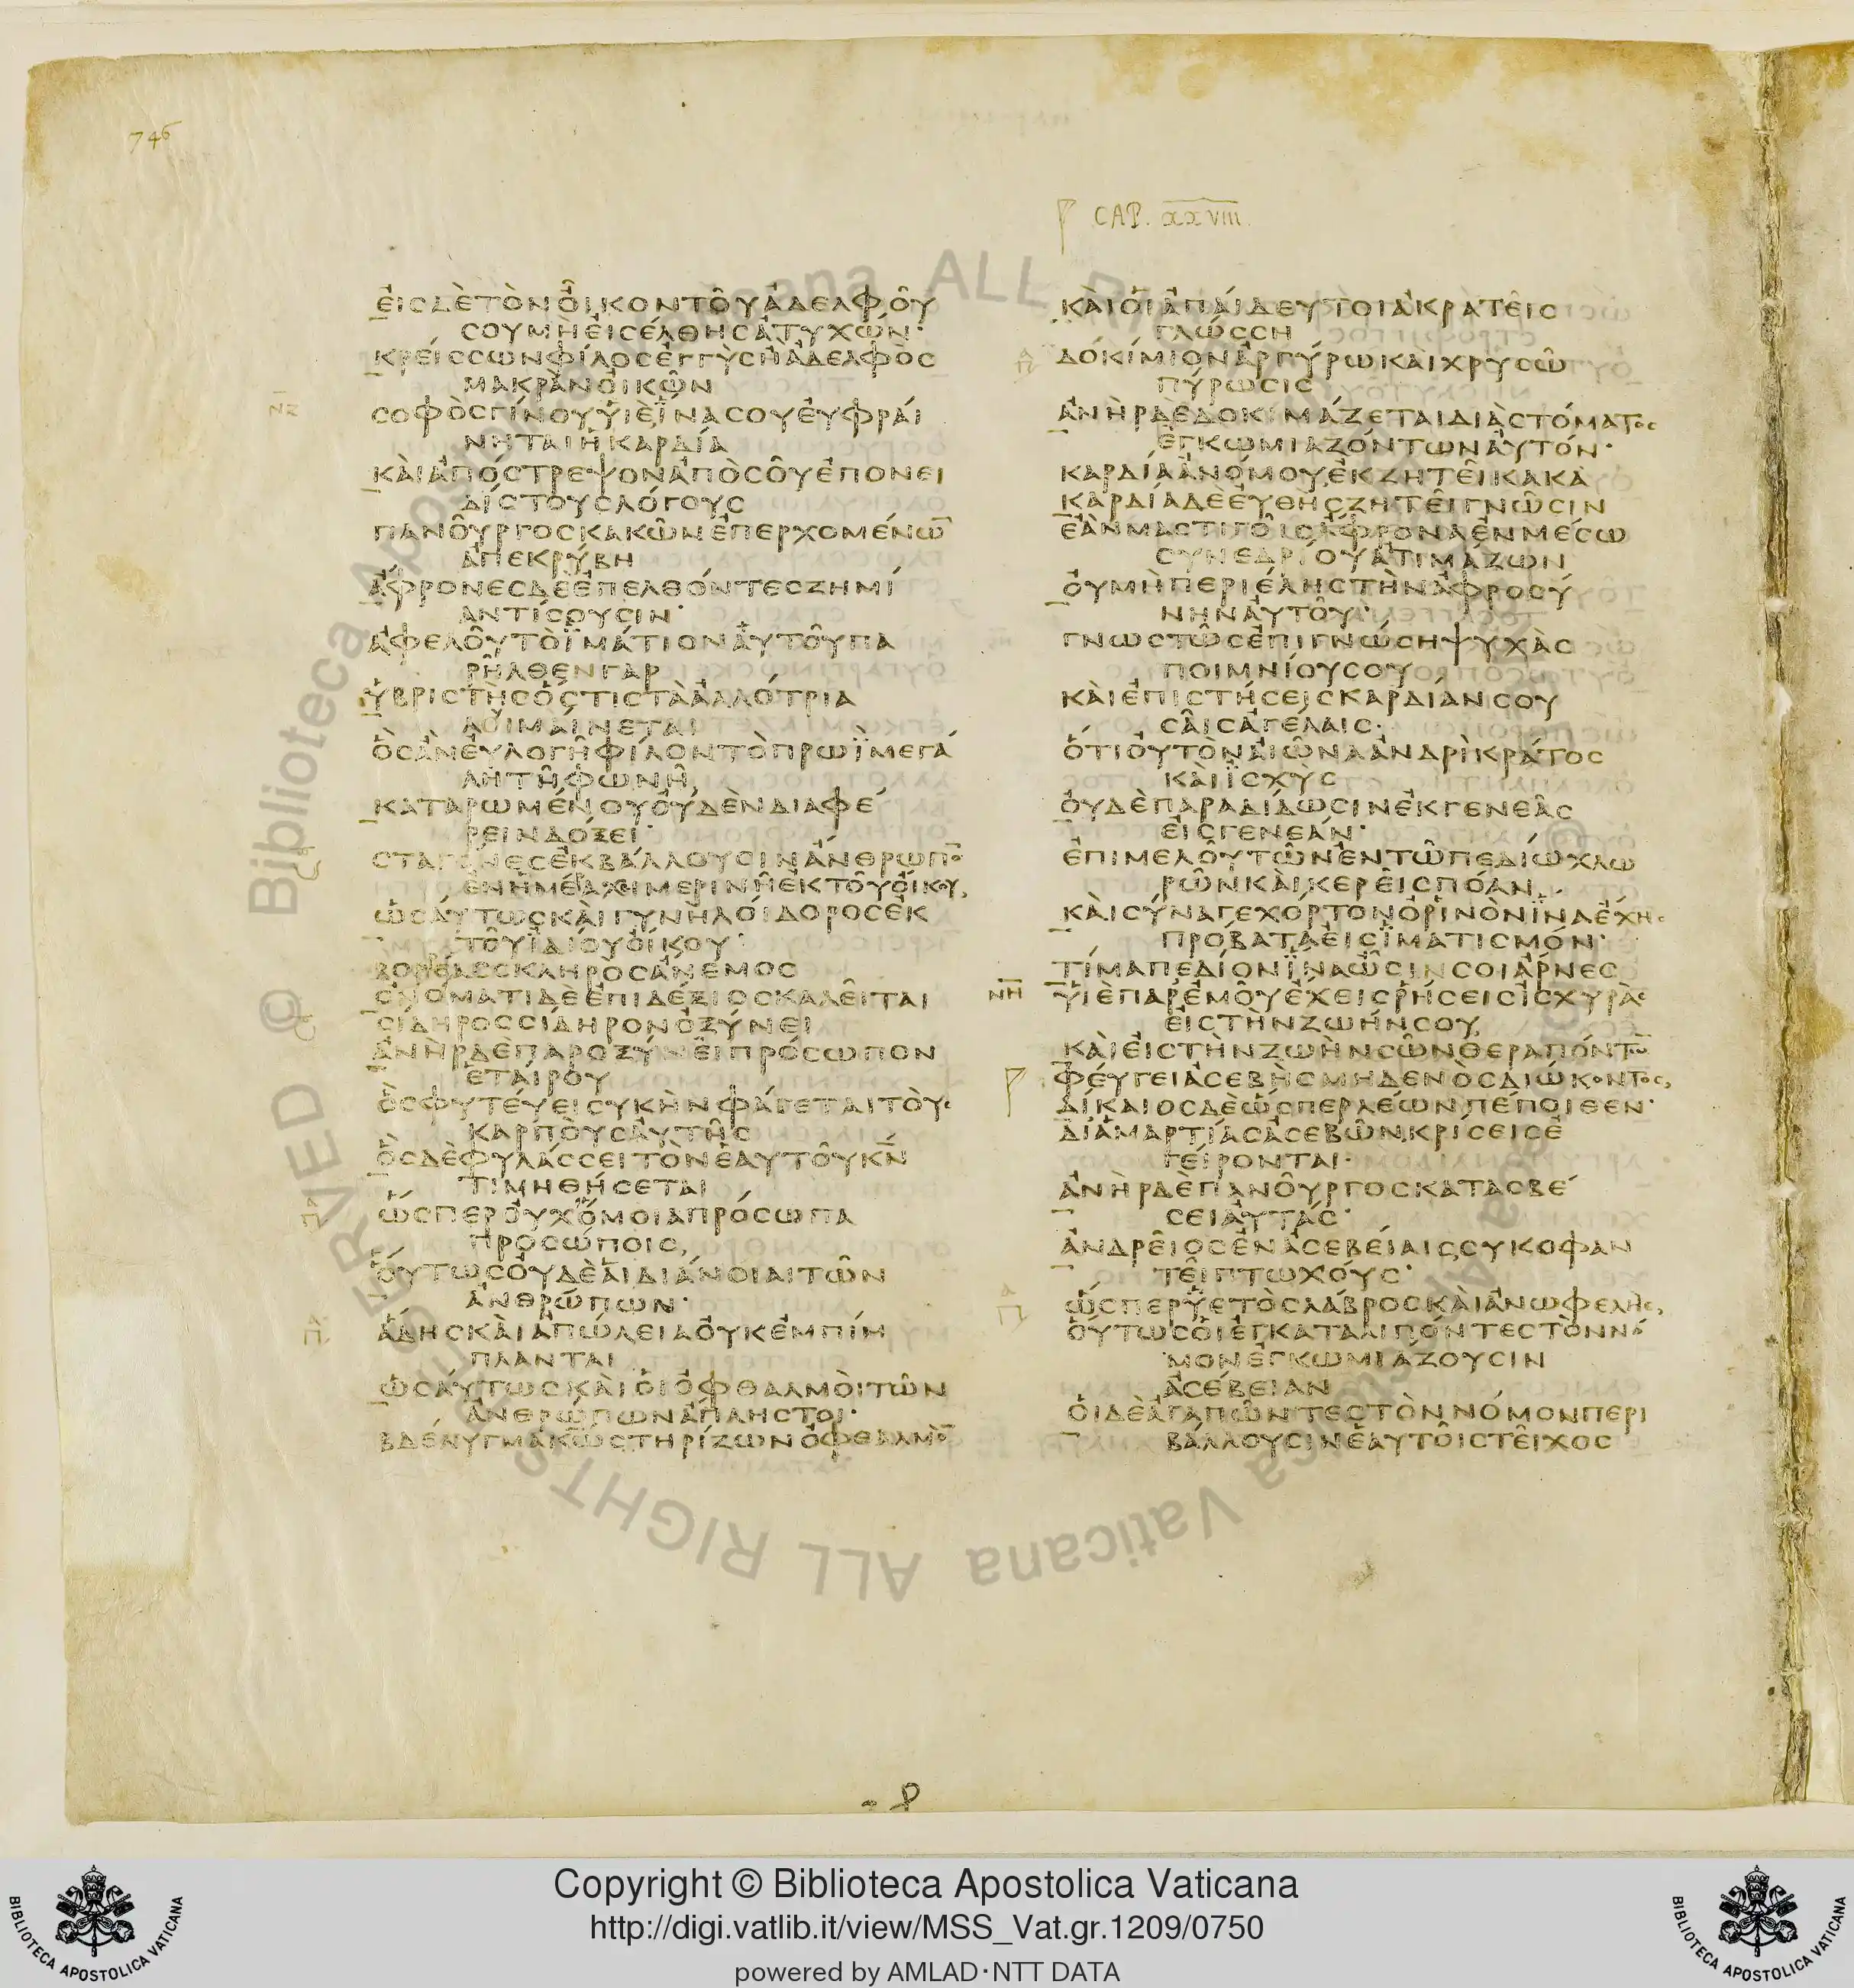 746
CAP. XXVIII.
ἐισδὲτὸνὀῖκοντοῦἀδελφοῦ
σουμὴἐισέλθησἀτυχῶν·
κρείσσωνφίλοσἐγγὺσἢἀδελφὸσ
μακρὰνὀικῶν
ΝΖ
σοφὸσγίνουυἱὲἵνασουἐυφραί
νηταιἡκαρδία
κὰιἀπόστρεψονἀπὸσοῦἐπονει
δίστουσλόγουσ
πανοῦργοσκακῶνἐπερχομένω̅
ἀπεκρύβη
ἄφρονεσδὲἐπελθόντεσζημί
αντίσουσιν·
ἀφελοῦτὸἱμάτιοναὐτοῦπα
ρῆλθενγαρ
ὑβριστὴσὅστιστὰἀλλότρια
λυμαίνεται
ὃσἂνἐυλογῆφίλοντὸπρωῒμεγά
λητῆφωνῆ
καταρωμένουὀυδὲνδιαφέ
ρεινδόξει·
σταγόνεσἐκβάλλουσινἄνθρωπο̅
ἐνἡμέραχιμερινῆἐκτοῦὀίκου,
ὡσάυτωσκὰιγυνὴλόιδοροσἐκ
τοῦἰδίουὀίκου·
βορέασσκληρὸσἄνεμοσ
ὀνόματιδὲἐπιδέξιοσκαλεῖται
σίδηροσσίδηρονὀξύνει
ἀνὴρδὲπαροξύνειπρόσωπον
ἑταίρου
ὃσφυτέυεισυκὴνφάγεταιτὸυσ
καρπὸυσἀυτῆσ
ὃσδὲφυλάσσειτὸνἑαυτοῦκ̅ν̅
τιμηθήσεται
ὥσπερὀυχὅμοιαπρόσωπα
προσώποισ,
ὅυτωσὀυδὲἁιδιάνοιαιτῶν
ἀνθρώπων·
ἅδησκὰιἀπώλειαὀυκἐμπίμ
πλανται
ὡσάυτωσκὰιὁιὀφθαλμὸιτῶν
ἀνθρώπωνἄπληστοι·
βδέλυγμακ̅ω̅στηρίζωνὀφθαλμὸ̅
κὰιὁιἀπάιδευτοιἀκρατεῖσ
γλώσση
δοκίμιονἀργύρωκὰιχρυσῶ
πύρωσισ
ἀνὴρδὲδοκιμάζεταιδιὰστόματοσ
ἐγκωμιαζόντωναὐτόν·
καρδίαἀνόμουἐκζητεῖκακὰ
καρδίαδὲἐυθὴσζητεῖγνῶσιν
ἐὰνμαστιγοῖσἄφροναἐνμέσω
συνεδρίουἀτιμάζων
ὀυμὴπεριέληστὴνἀφροσύ
νηναὐτοῦ·
γνωστῶσἐπιγνώσηψυχὰσ
ποιμνίουσου
κὰιἐπιστήσεισκαρδίανσου
σᾶισἀγέλαισ·
ὅτιὀυτὸναἰῶναἀνδρὶκράτοσ
κὰιἰσχὺσ
ὀυδὲπαραδίδωσινἐκγενεᾶσ
ἐισγενεάν·
ἐπιμελοῦτῶνἐντῶπεδίωχλω
ρῶνκὰικερεῖσπόαν
κὰισύναγεχόρτονὀρινὸνἵναἔχησ
πρόβαταἐισἱματισμόν·
τίμαπεδίονἵναὦσινσοιἄρνεσ
ΝΗ
υἱὲπαρἐμοῦἔχεισρήσεισἰσχυρὰσ
ἐιστὴνζωήνσου,
κὰιἐιστὴνζωὴνσῶνθεραπόντω̅
φέυγειἀσεβὴσμηδενὸσδιώκοντοσ,
δίκαιοσδὲὥσπερλέωνπέποιθεν·
διἁμαρτίασἀσεβῶνκρίσεισἐ
γείρονται·
ἀνὴρδὲπανοῦργοσκατασβέ
σειἀυτάσ·
ἀνδρεῖοσἐνἀσεβείαισσυκοφαν
τεῖπτωχόυσ·
ὥσπερὑετὸσλάβροσκὰιἀνωφελὴσ,
ὅυτωσὁιἐγκαταλιπόντεστὸννό
μονἐγκωμιάζουσιν
ἀσέβειαν
ὁιδὲἀγαπῶντεστὸννόμονπερι
βάλλουσινἑαυτοῖστεῖχοσ
Copyright © Biblioteca Apostolica Vaticana
http://digi.vatlib.it/view/MSS_Vat.gr.1209/0750
powered by AMLAD·NTT DATA
BIBLIOTECA APOSTOLICA VATICANA
BIBLIOTECA APOSTOLICA VATICANA